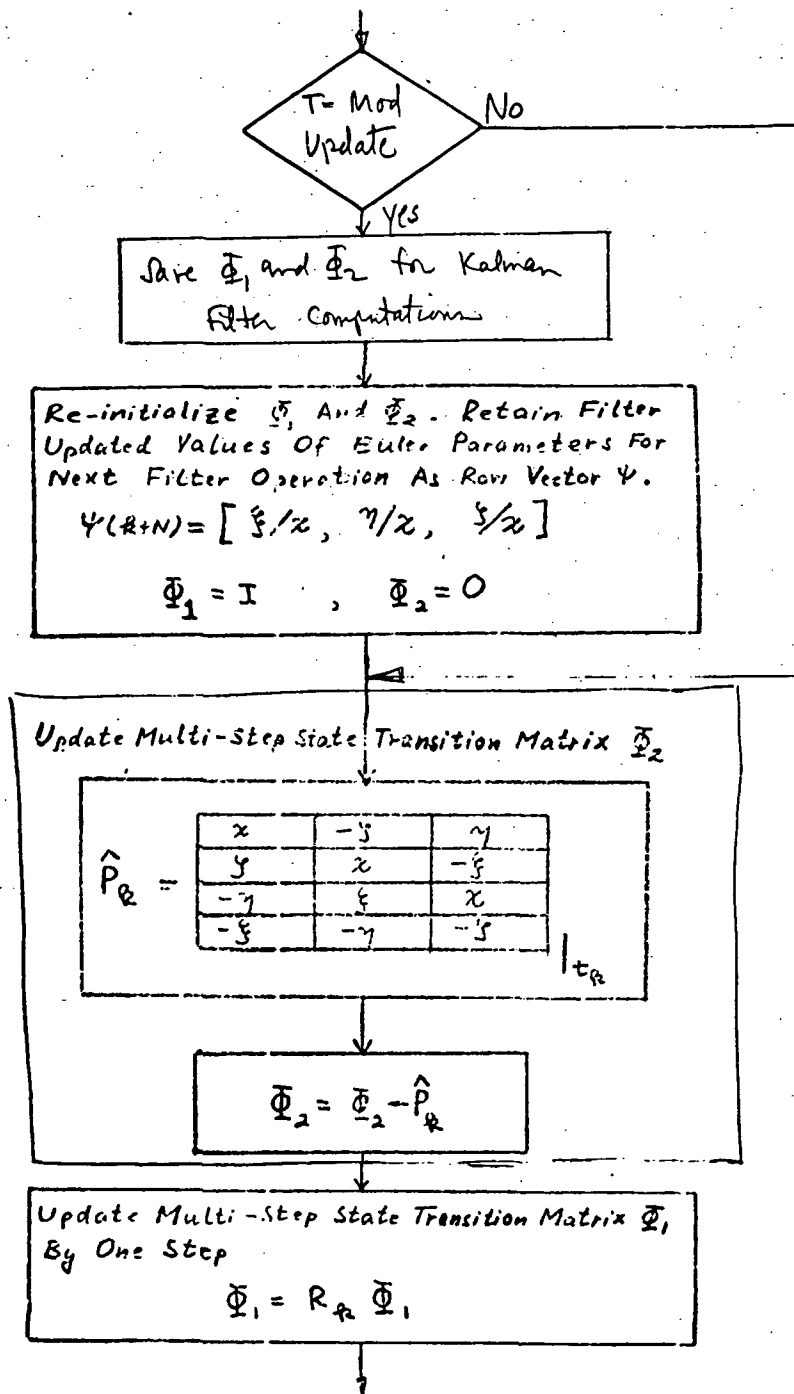 T= Mod
Update
No
Yes
Save Φ₁ and Φ₂ for Kalman
Filter Computations
Re-initialize Φ₁ And Φ₂. Retain Filter
Updated Values Of Euler Parameters For
Next Filter Operation As Row Vector Ψ.
Ψ(k+N) = [ ξ/χ, η/χ, ζ/χ ]
Φ₁ = I , Φ₂ = O
Update Multi-Step State Transition Matrix Φ₂
P̂ₖ =
χ -ζ η
ζ χ -ξ
-η ξ χ
-ξ -η -ζ
|tₖ
Φ₂ = Φ₂ - P̂ₖ
Update Multi-Step State Transition Matrix Φ₁
By One Step
Φ₁ = Rₖ Φ₁